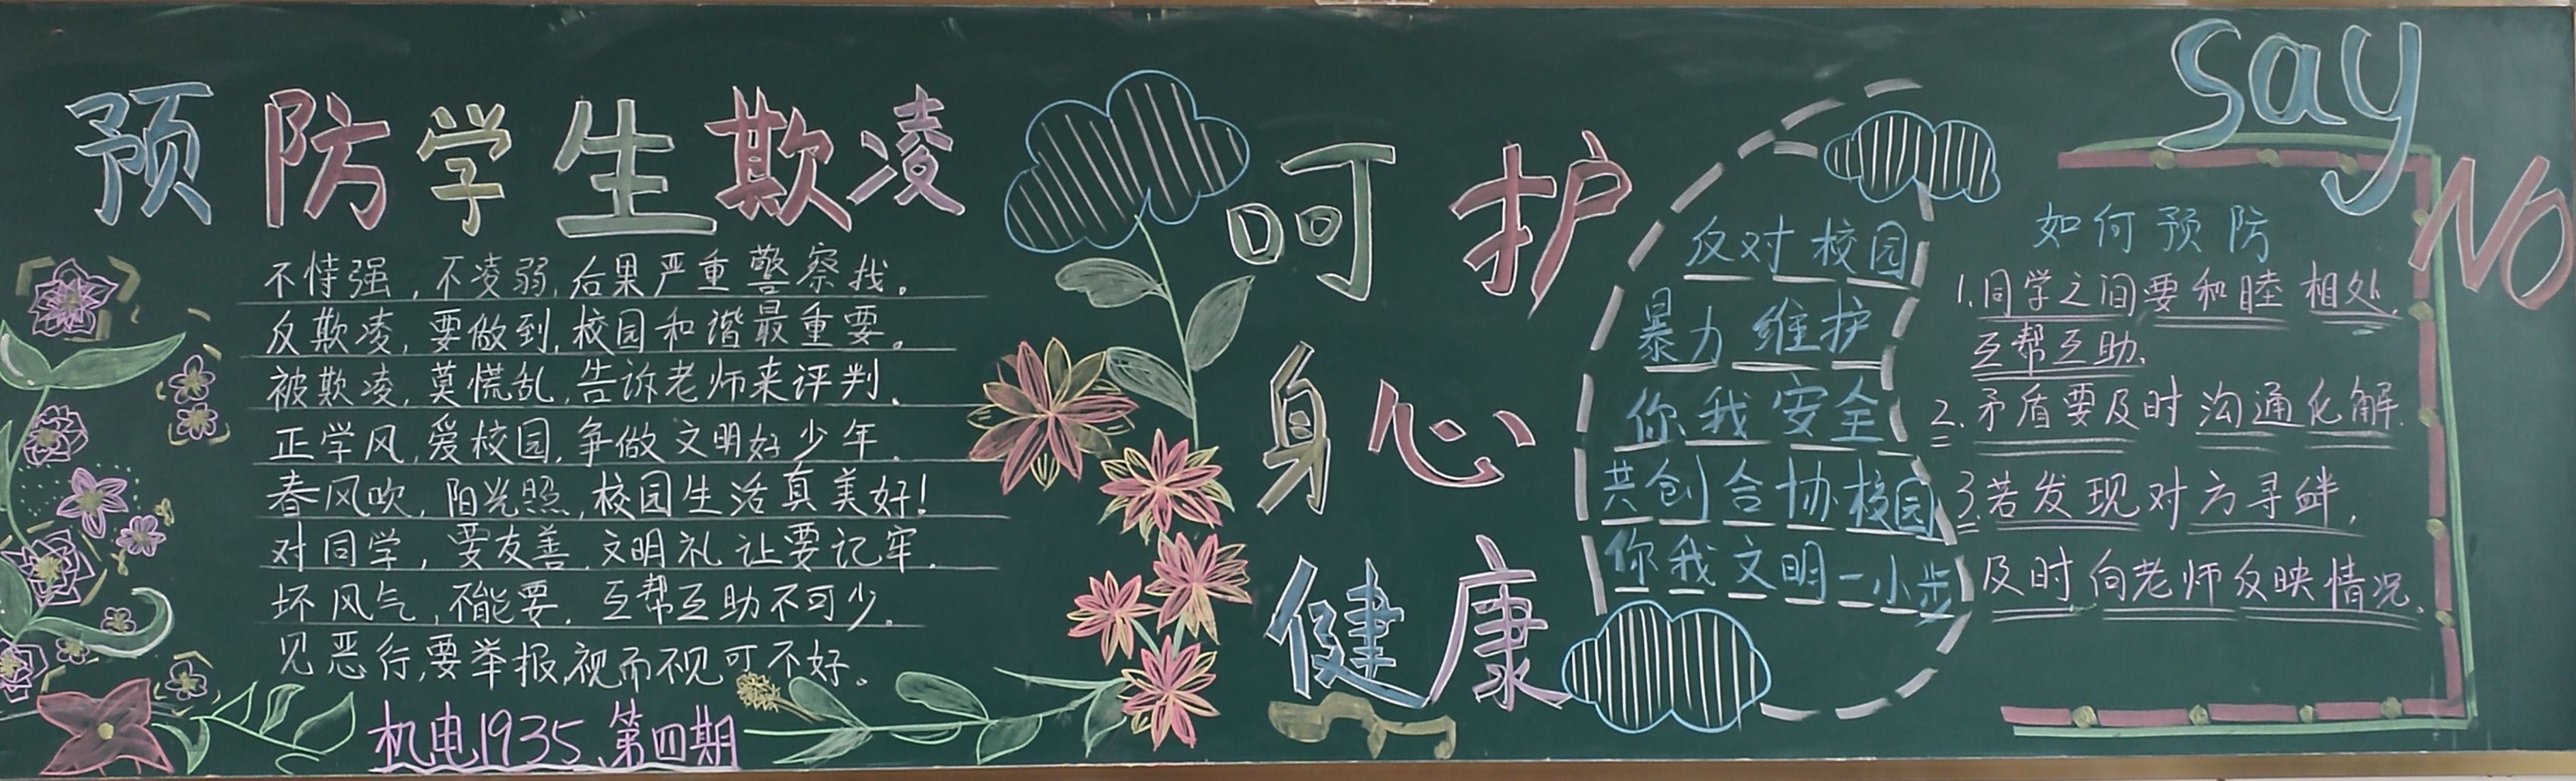 预防学生欺凌
不恃强，不凌弱，后果严重警察找。
反欺凌，要做到，校园和谐最重要。
被欺凌，莫慌乱，告诉老师来评判。
正学风，爱校园，争做文明好少年。
春风吹，阳光照，校园生活真美好！
对同学，要友善，文明礼让要记牢。
坏风气，不能要，互帮互助不可少。
见恶行，要举报，视而不见可不好。
机电1935、第四期
呵护
身心
健康
反对校园
暴力维护
你我安全
共创合协校园
你我文明一小步
say
NO
如何预防
1.同学之间要和睦相处，
互帮互助.
2.矛盾要及时沟通化解.
3.若发现对方寻衅，
及时向老师反映情况.